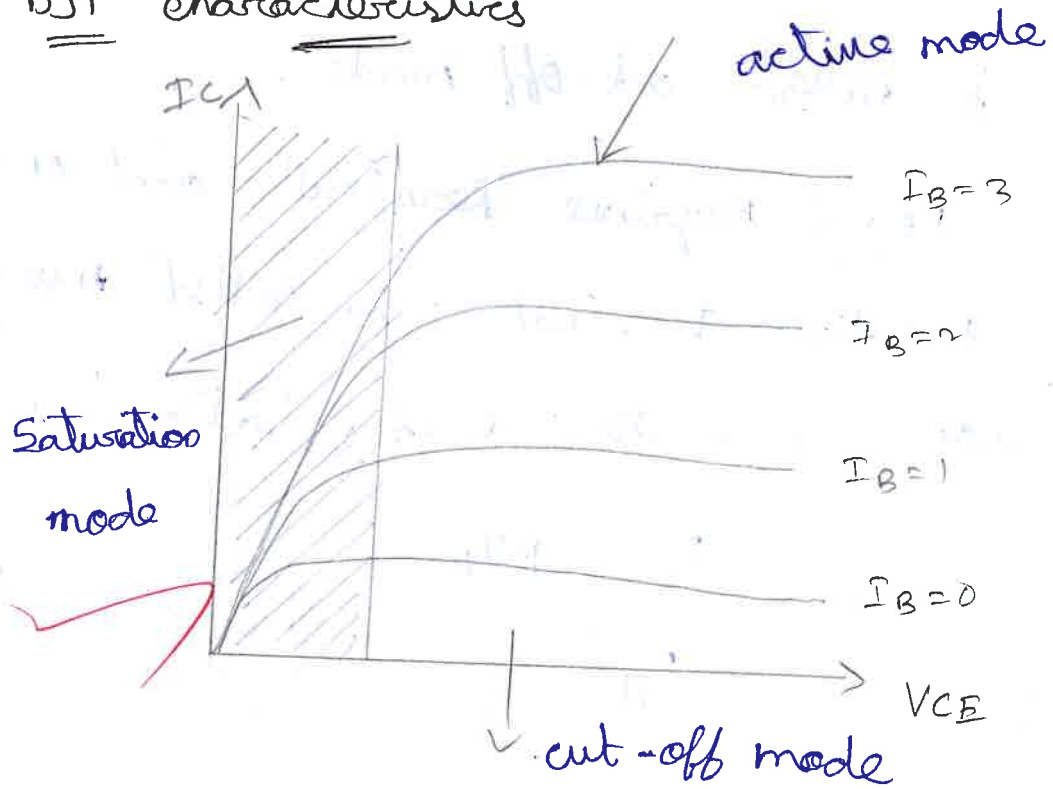 BJT characteristics
active mode
IC
IB = 3
IB = 2
Saturation
mode
IB = 1
IB = 0
VCE
cut-off mode